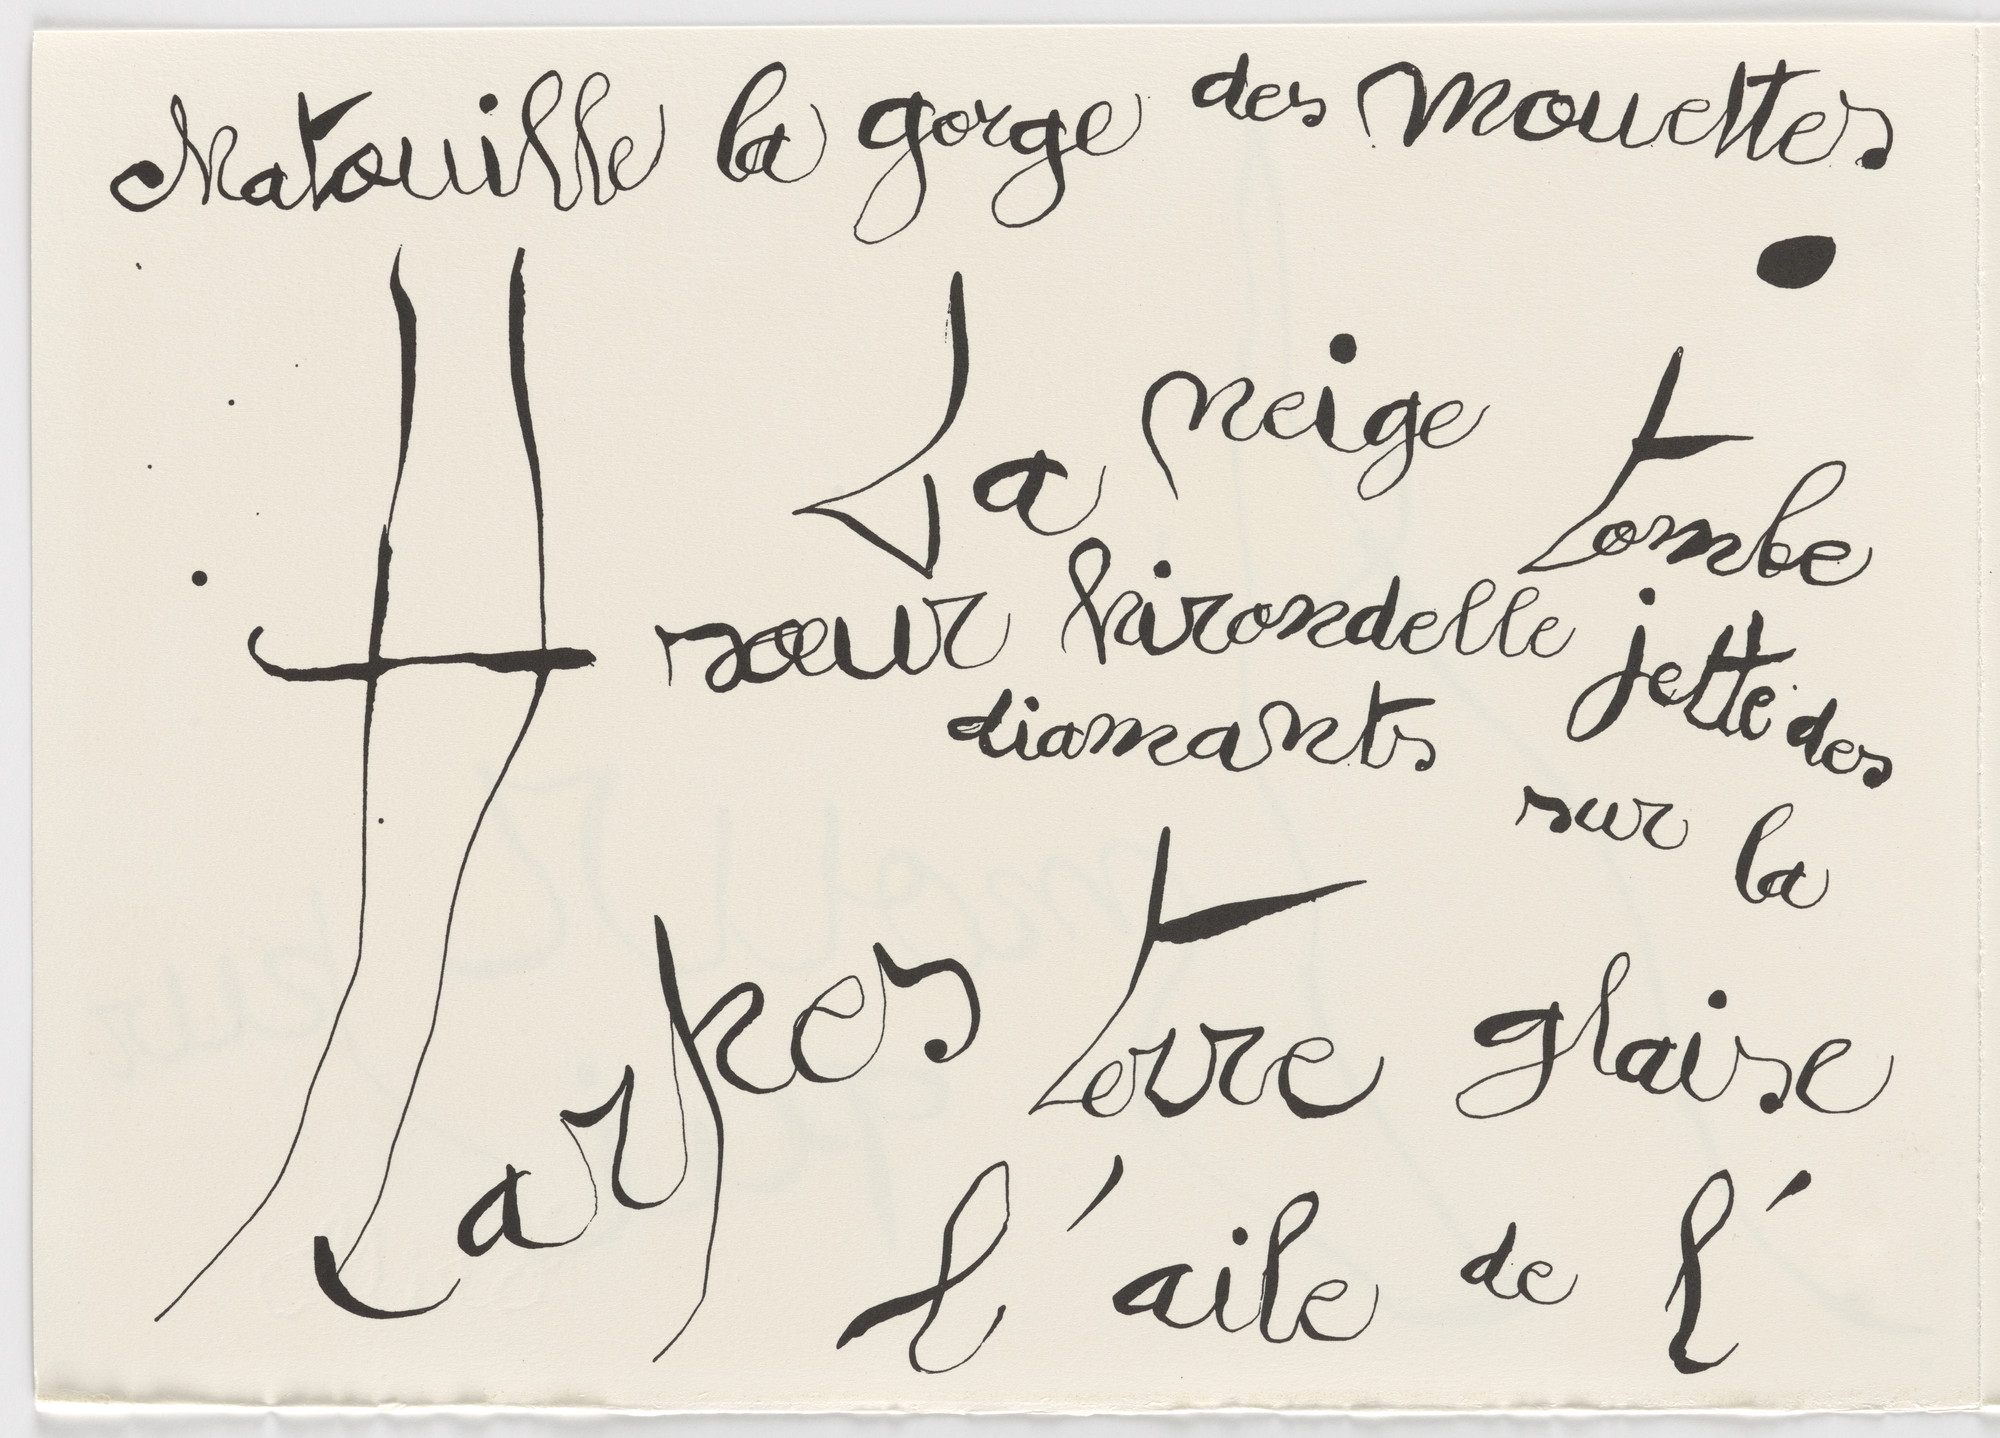 chatouille la gorge des mouettes
La neige tombe
sœur hirondelle jette des
diamants
sur la
Harpes terre glaise
l'aile de l'